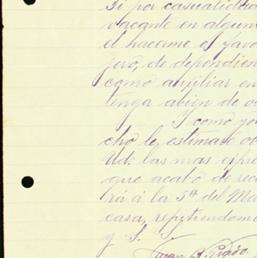 Si por casualidad
vacante en algun
el hacerme el favo
jero, de dependien
como auxiliar en
tenga abien de
Y como yo
cho le estimaré
Ud. las mas espre
que acabo de rec
rá á la Sª del Ma
casa, repitiendome
y S. S.